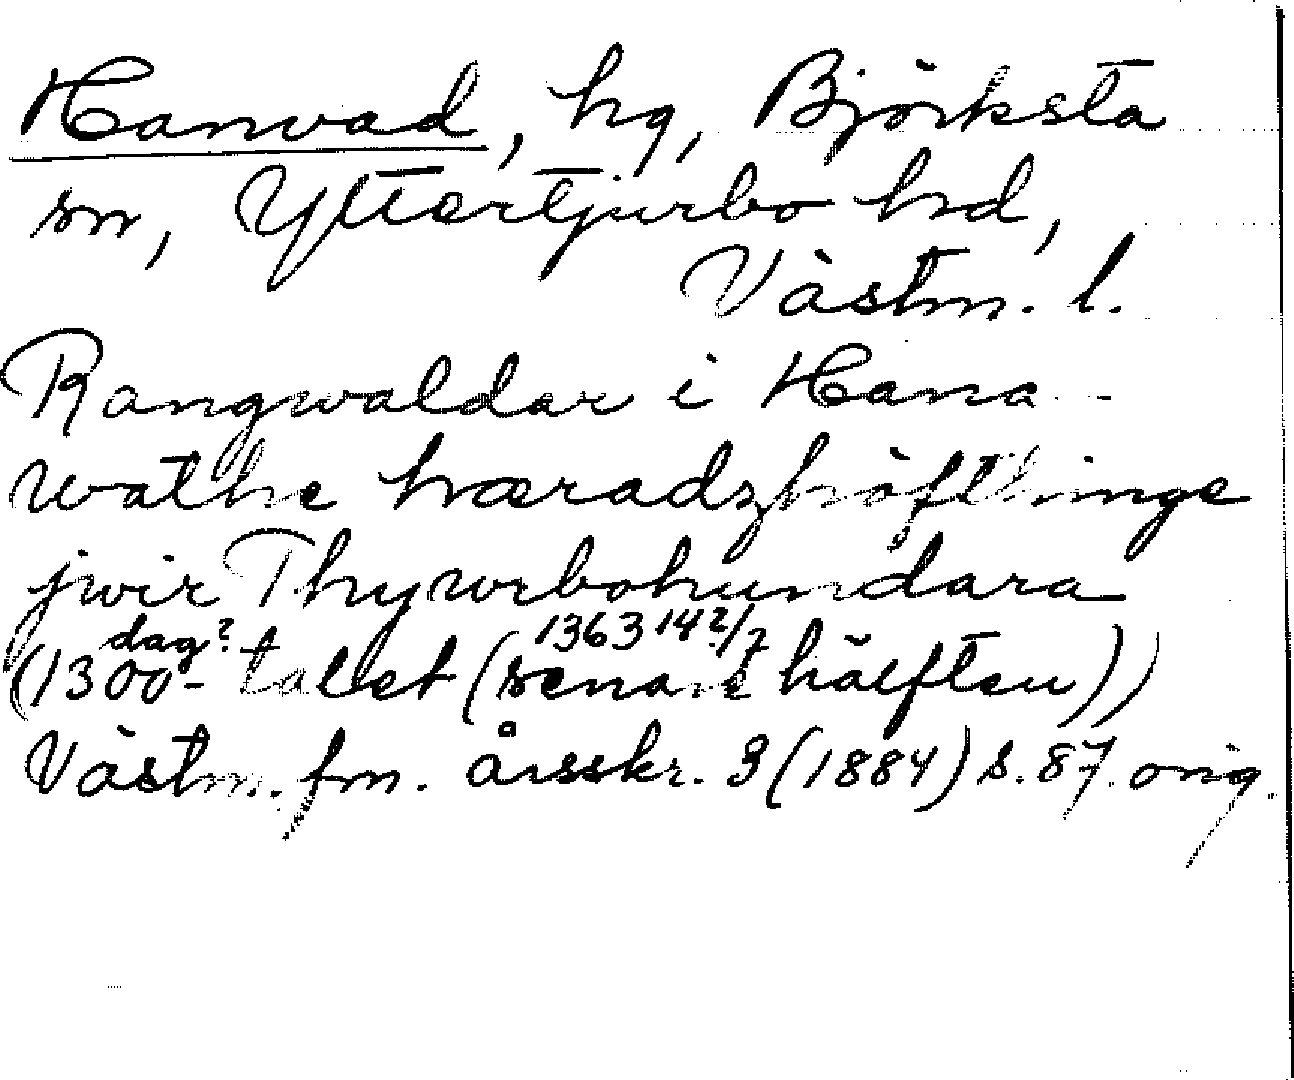 Hanvad, hg, Björksta
sn, Yttertjurbo hd,
Västm. l.
Rangwaldar i Hana-
wathe hæradzhöfthinge
jwir Thywrbohundara
dag? 1363 14?/7
(1300-talet (senare hälften))
Västm. fm. årsskr. 3 (1884) s. 87. orig.